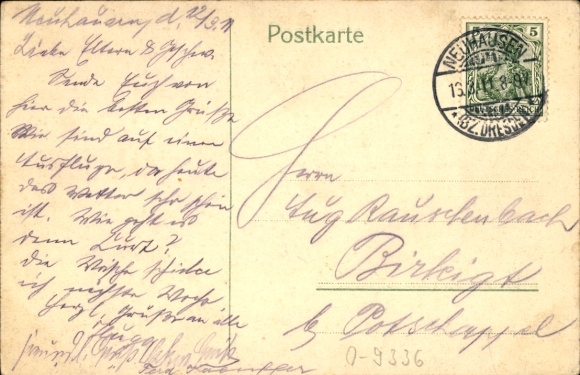 Neuhausen, d. 12/3.11
Postkarte
5
NEUHAUSEN
13.3.11. 8-9V
*(BZ.DRESDEN)
Liebe Eltern & Geschw.
Sende Euch von
hier die besten Grüße
Wir sind auf einem
Ausfluge, da heute
das Wetter sehr schön
ist. Wie geht es
denn Kurt?
die Wäsche schicke
ich nächste Woche
Herzl. Grüße an alle
Herrn
Rauschenbach
Birkigt
b/ Potschappel
0-9336